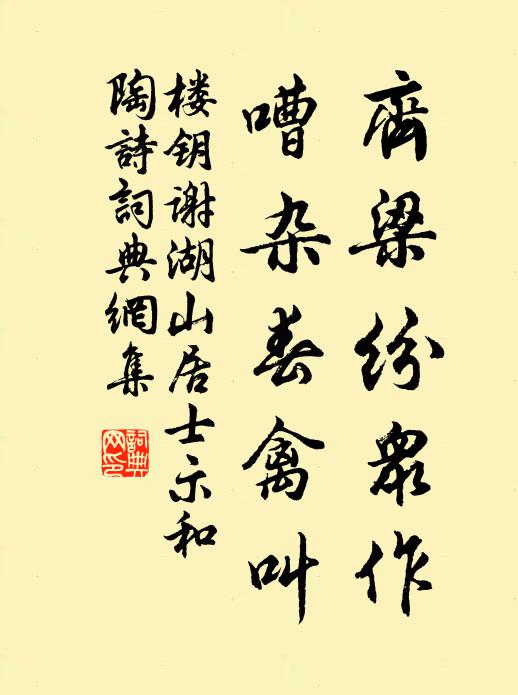 齊梁紛眾作
嘈杂春禽叫
楼钥谢湖山居士示和
陶詩詞典網集
詞典网印